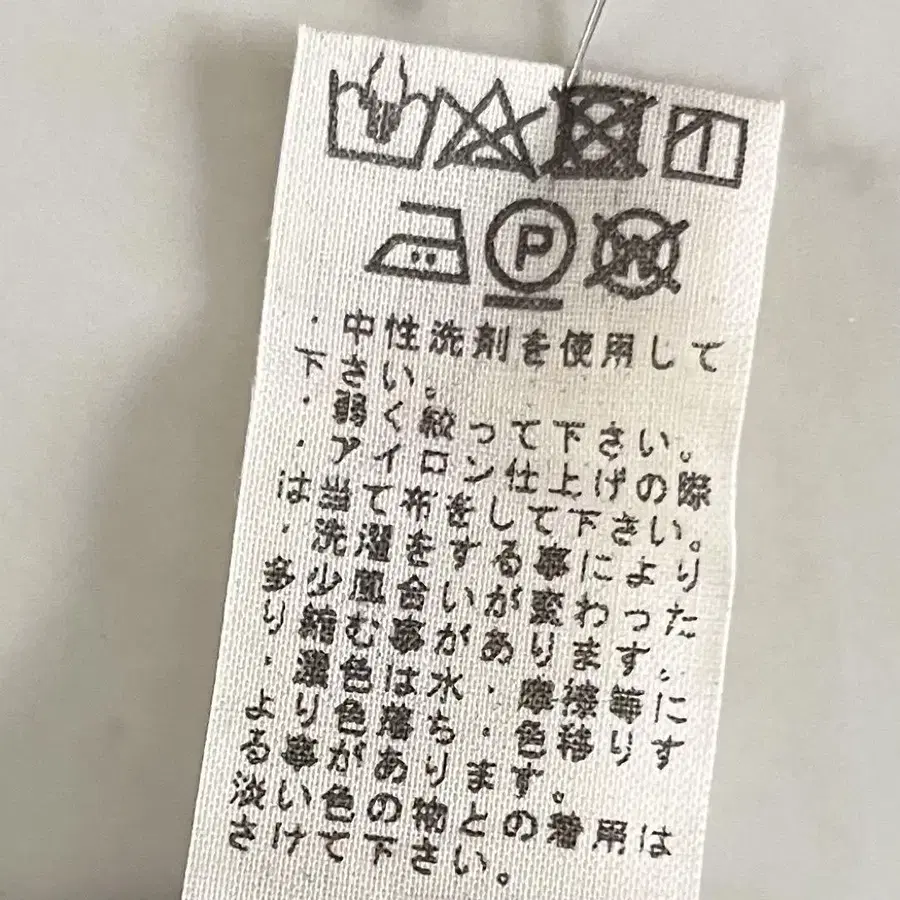 P W
・中性洗剤を使用して
下さい。
・弱く絞って下さい。
・アイロン仕上げの際
は当て布をして下さい。
・洗濯をする事により
多少風合いが変わった
り縮む事があります。
・濃色は水・摩擦等に
より色落ち・色移りす
る事があります。
淡い色の物との着用は
さけて下さい。